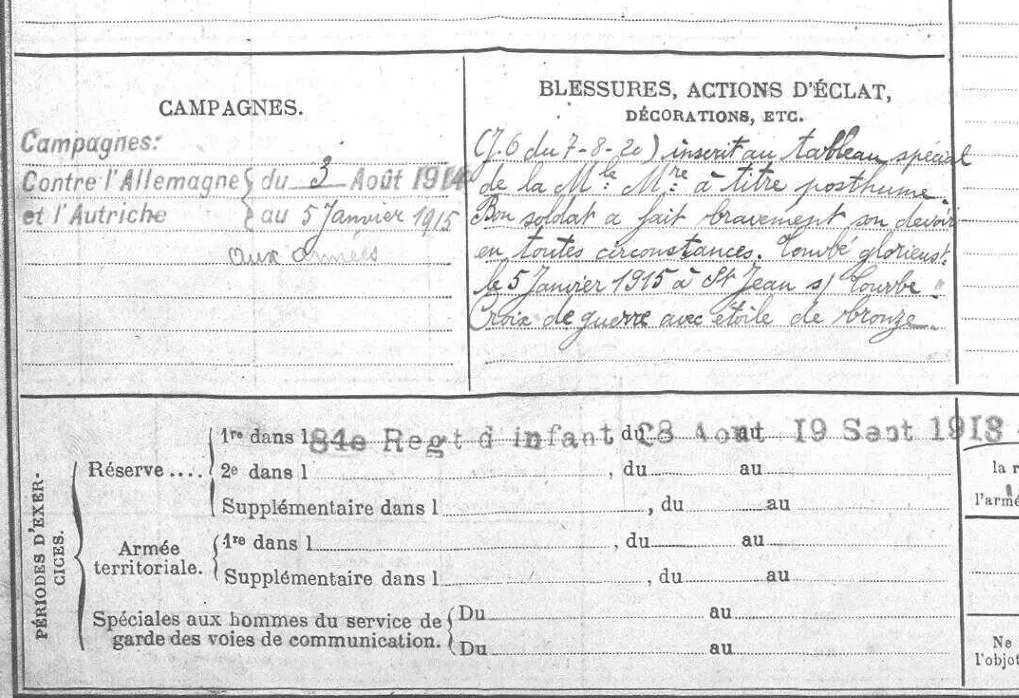 CAMPAGNES.
Campagnes:
Contre l'Allemagne { du 3 Août 1914
et l'Autriche { au 5 Janvier 1915
aux armées
BLESSURES, ACTIONS D'ÉCLAT,
DÉCORATIONS, ETC.
(J.6 du 7-8-20) inscrit au tableau spécial
de la Mle Mre à titre posthume.
Bon soldat a fait bravement son devoir
en toutes circonstances. Tombé glorieust.
le 5 Janvier 1915 à St Jean s/ Tourbe "
Croix de guerre avec étoile de bronze.
PÉRIODES D'EXER-
CICES.
Réserve .... { 1re dans l 84e Regt d'infant du 28 Aout au 19 Sept 1913
2e dans l , du au
Supplémentaire dans l , du au
Armée
territoriale. { 1re dans l , du au
Supplémentaire dans l , du au
Spéciales aux hommes du service de { Du au
garde des voies de communication. { Du au
la r
l'armé
Ne
l'objet